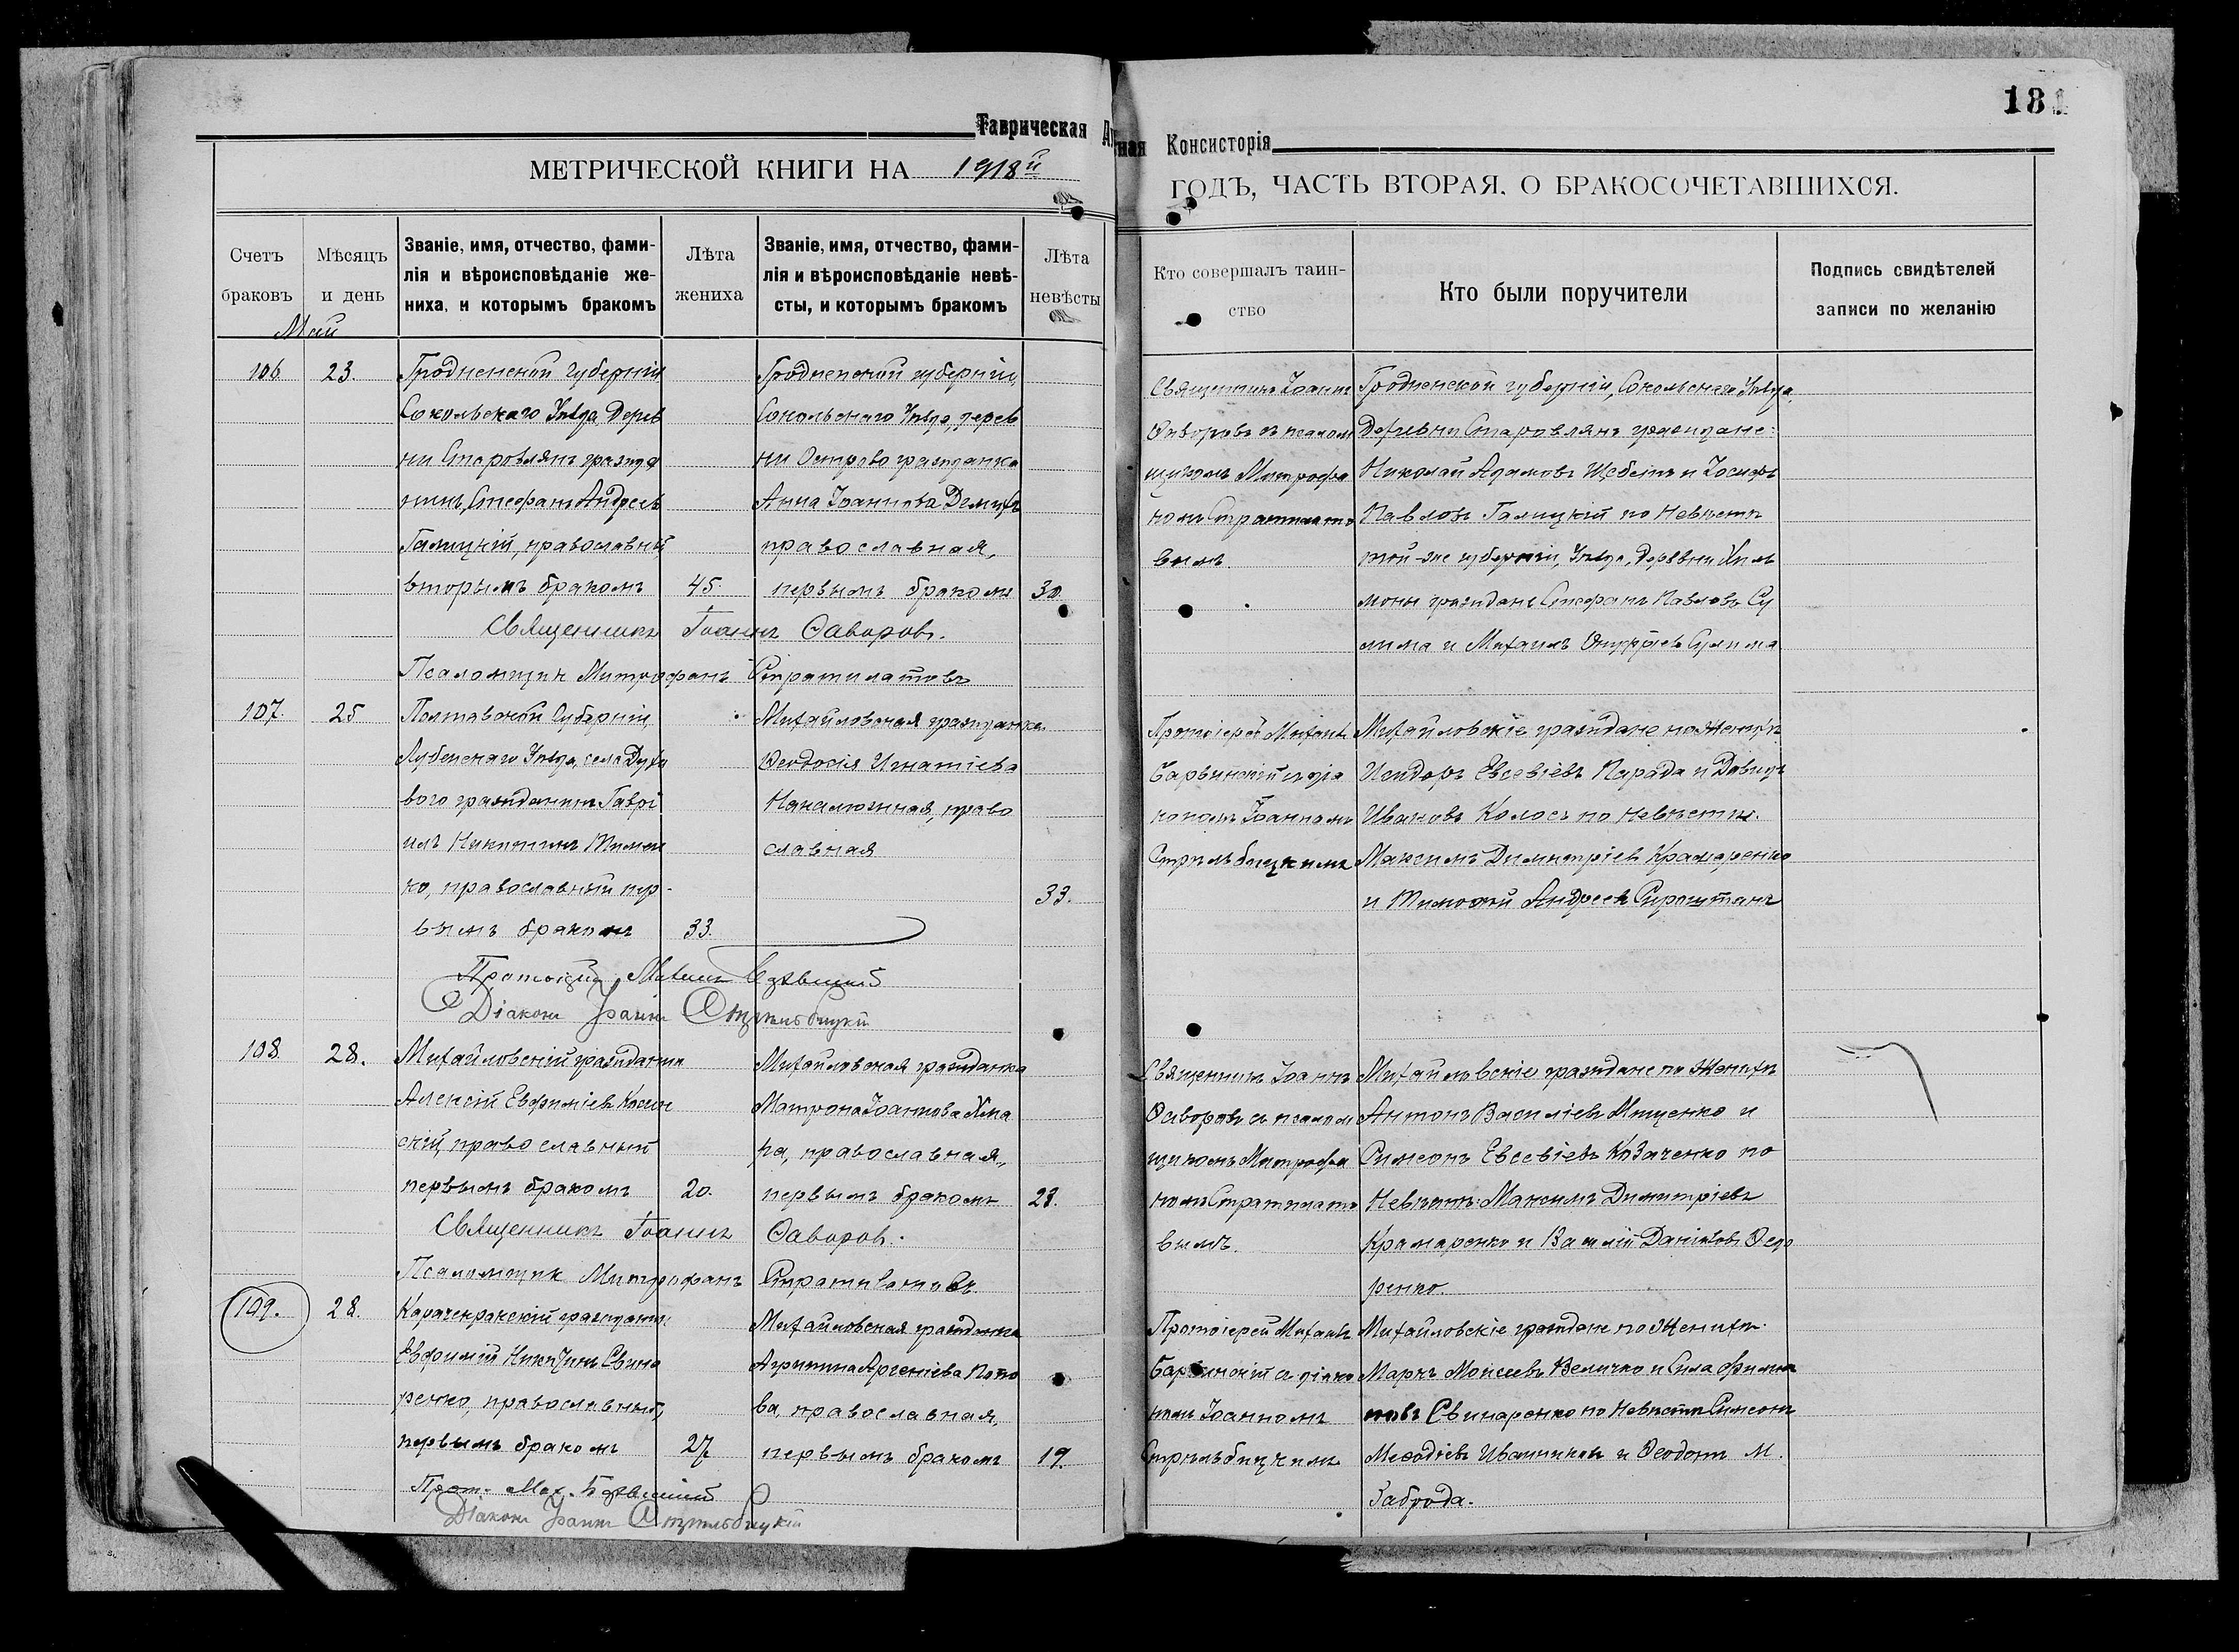 181
Таврическая Ду
ная Консисторія
МЕТРИЧЕСКОЙ КНИГИ НА 1918й
ГОДЪ, ЧАСТЬ ВТОРАЯ, О БРАКОСОЧЕТАВШИХСЯ.
Счетъ браковъ
Мѣсяцъ и день
Званіе, имя, отчество, фами-
лія и вѣроисповѣданіе же-
ниха, и которымъ бракомъ
Лѣта
жениха
Званіе, имя, отчество, фами-
лія и вѣроисповѣданіе невѣ-
сты, и которымъ бракомъ
Лѣта
невѣсты
Кто совершалъ таин-
ство
Кто были поручители
Подпись свидѣтелей
записи по желанію
Май
106.
23.
Гродненской Губерніи
Сокольскаго Уѣзда Дерев
ни Старовлянъ гражда
нинъ, Стефанъ Андреевъ
Галицкій, православный
вторымъ бракомъ
45.
Гродненской губерніи,
Сокольскаго Уѣзда, дерев
ни Острово гражданка
Анна Іоаннова
православная,
первымъ бракомъ
30
Священникъ Іоаннъ
Ѳаворовъ съ псалом
щикомъ Митрофа
номъ Стратилато
вымъ.
Гродненской губерніи, Сокольскаго Уѣзда,
Деревни Старовлянъ граждане:
Николай Адамовъ и Іосифъ
Павловъ Галицкій по Невѣстѣ
той-же губерніи, Уѣзда, деревни
граждане Стефанъ Павловъ Су
лима и Михаилъ Сулима
Священникъ Іоаннъ Ѳаворовъ.
Псаломщик Митрофанъ Стратилатовъ
107.
25
Полтавской Губерніи,
Лубенскаго Уѣзда, села Духо
вого гражданинъ Гаврі
илъ Никитинъ Тимош
ко, православный пер-
вымъ бракомъ
33.
Михайловская гражданка
Ѳеодосія Игнатіева
православная
33.
Протоіерей Михаилъ
Барвинскій съ діа
кономъ Іоанномъ
Стрильбицкимъ
Михайловскіе граждане по Женихѣ
Исидоръ Евсевіевъ Парада и Давидъ
Ивановъ Колосъ по Невѣстѣ.
Максимъ Димитріевъ Крамаренко
и Тимоѳей Андреевъ Сироштанъ
Протоіерей Михаилъ Барвинскій
Діаконъ Іоаннъ Стрильбицкій
108.
28.
Михайловскій гражданинъ
Алексій Евфиміевъ
православный
первымъ бракомъ
20.
Михайловская гражданка
Матрона Іоаннова Хма
ра, православная,
первымъ бракомъ
23.
Священникъ Іоаннъ
Ѳаворовъ съ псалом
щикомъ Митрофа
номъ Стратилато
вымъ.
Михайловскіе граждане по Женихѣ
Антонъ Василіевъ Мищенко и
Симеонъ Евсевіевъ Козаченко по
Невѣстѣ: Максимъ Димитріевъ
Крамаренко и Василій Даніиловъ Ѳедо
ренко.
Священникъ Іоаннъ Ѳаворовъ.
Псаломщик Митрофанъ Стратилатовъ
109.
28.
Карачекракскій гражданинъ
Евфимій Никитинъ Свина
ренко, православный,
первымъ бракомъ
27
Михайловская гражданка
Агрипина Арсеніева Попо
ва, православная,
первымъ бракомъ
19.
Протоіерей Михаилъ
Барвинскій съ діако
номъ Іоанномъ
Стрильбицкимъ
Михайловскіе граждане по Женихѣ
Маркъ Моисеевъ Величко и Сила Филип
повъ Свинаренко по Невѣстѣ Симеонъ
Меѳодіевъ и Ѳеодотъ М.
Заброда.
Прот. Мих. Барвинскій
Діаконъ Іоаннъ Стрильбицкій